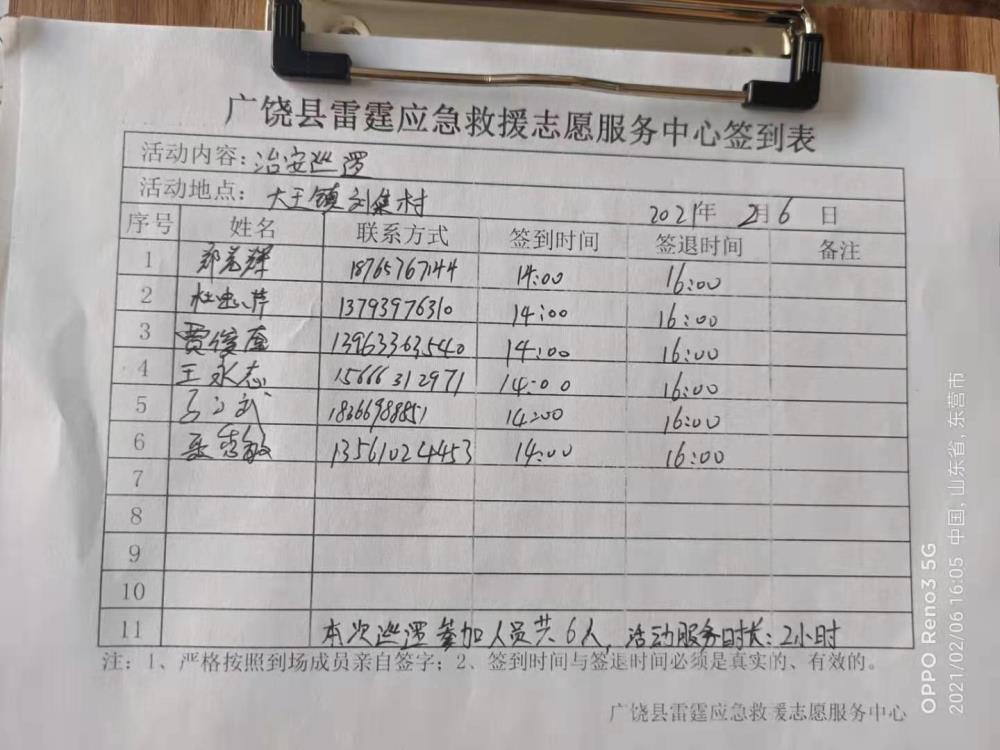 广饶县雷霆应急救援志愿服务中心签到表
活动内容：治安巡逻
活动地点：大王镇刘集村 2021年 2月6 日
序号 姓名 联系方式 签到时间 签退时间 备注
1 18765767144 14:00 16:00
2 杜忠芹 13793976310 14:00 16:00
3 贾俊奎 13963363540 14:00 16:00
4 王永志 15666312971 14:00 16:00
5 18366988851 14:00 16:00
6 13561024453 14:00 16:00
7
8
9
10
11 本次巡逻参加人员共6人，活动服务时长：2小时
注：1、严格按照到场成员亲自签字；2、签到时间与签退时间必须是真实的、有效的。
广饶县雷霆应急救援志愿服务中心
OPPO Reno3 5G
2021/02/06 16:05 中国，山东省，东营市